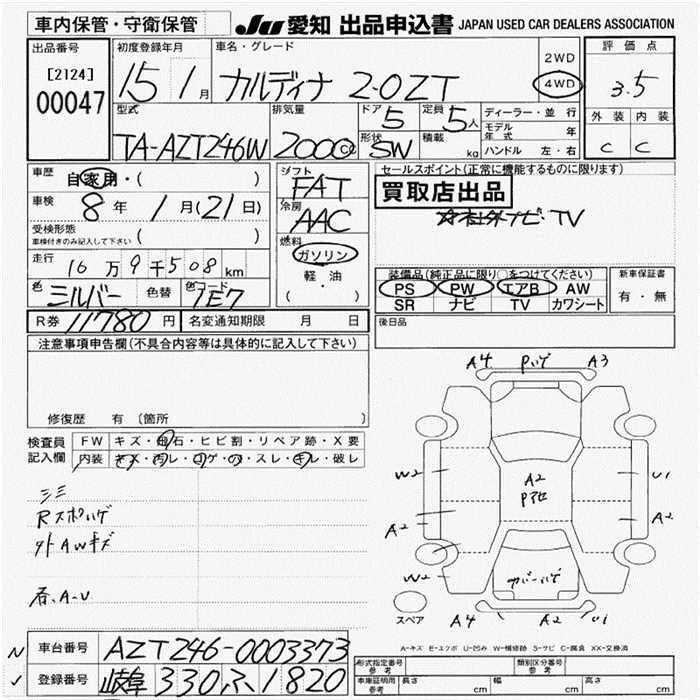 車内保管・守衛保管
JU 愛知 出品申込書 JAPAN USED CAR DEALERS ASSOCIATION
出品番号 [2124] 00047
初度登録年月 15 1月
車名・グレード カルディナ 2.0ZT
2WD
4WD
評価点 3.5
外装 内装
C C
型式 TA-AZT246W
排気量 2000cc
ドア 5
形状 SW
定員 5人
積載 kg
ディーラー・並行
モデル年式 年
ハンドル 左・右
車歴 自家用・( )
車検 8年 1月(21日)
受検形態 ( )
車検付きのみ記入して下さい
走行 16万9千508km
色 シルバー 色替 色コード 1E7
シフト FAT
冷房 AAC
燃料
ガソリン
軽・油
( ・ )
セールスポイント(正常に機能するものに限ります)
買取店出品
社外ナビ・TV
装備品(純正品に限り○をつけてください)
PS PW エアB AW
SR ナビ TV カワシート
新車保証書
有・無
R券 11780円 名変通知期限 月 日
後日品
注意事項申告欄(不具合内容等は具体的に記入して下さい)
修復歴 有(箇所 )
検査員記入欄
FW キズ・飛石・ヒビ割・リペア跡・X要
内装 スレ・キレ・破レ
Rスポハゲ
外AWキズ
A4 Pハゲ A3
W2 U1
A2 A2
A2
W2
カバーハゲ
スペア
A4 A2 U1
A-キズ E-エクボ U-凹み W-補修跡 S-サビ C-腐食 XX-交換済
車台番号 AZT246-0003373
登録番号 岐阜 330 ふ 1820
形式指定番号 参考
類別区分番号 参考
車庫証明用 参考 長さ cm 幅 cm 高さ cm